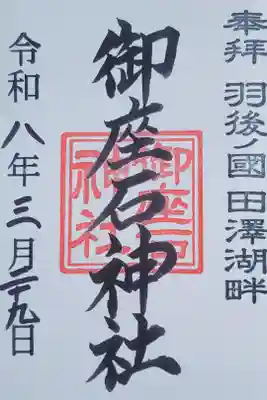 奉拝 羽後ノ國 田澤湖畔
御座石神社
御座石神社
令和八年三月二十九日